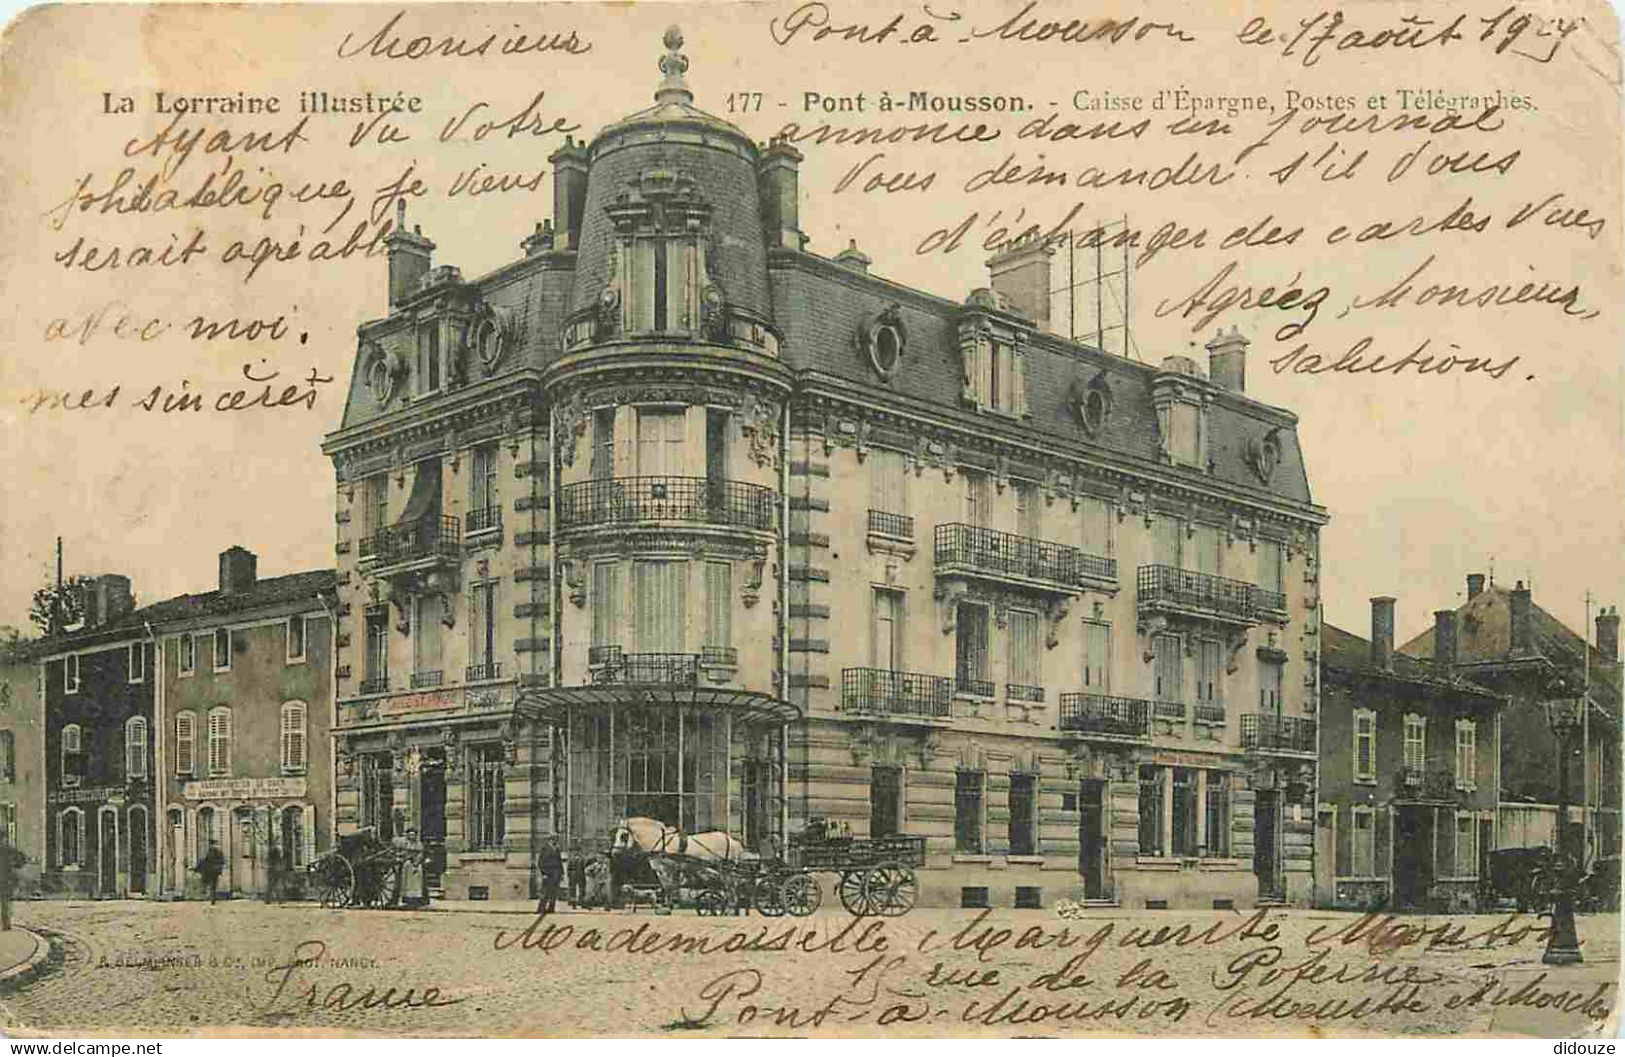 Monsieur
Pont-à-Mousson le 17 août
La Lorraine illustrée
177 - Pont à-Mousson. - Caisse d'Épargne, Postes et Télégraphes.
Ayant Vu Votre annonce dans un journal
philatélique, je viens Vous demander s'il Vous
serait agréable d'échanger des cartes Vues
avec moi. Agréez, Monsieur,
mes sincères salutions.
Mademoiselle Marguerite Mouton
15 rue de la Poterne
France Pont-à-Mousson (Meurthe et
NANCY.
didouze